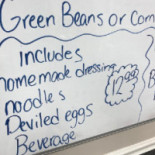 Green Beans or Corn
Includes
homemade dressing
noodles 12.99
Deviled eggs
Beverage